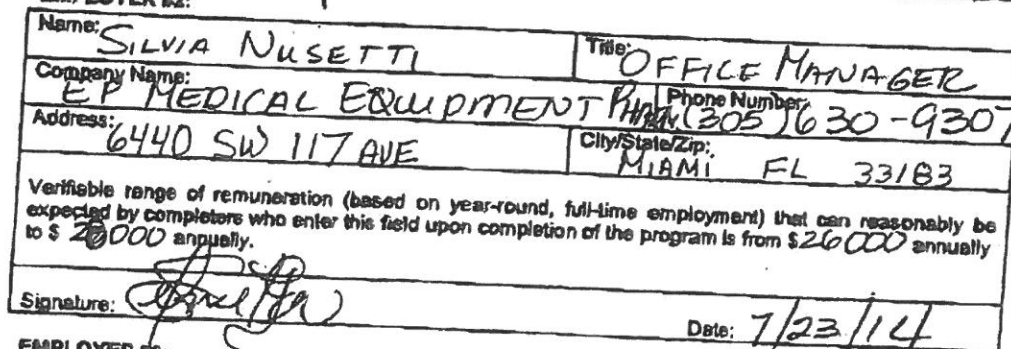 Name: SILVIA NUSETTI Title: OFFICE MANAGER
Company Name: EP MEDICAL EQUIPMENT Phone Number: (305) 630-9307
Address: 6440 SW 117 AVE City/State/Zip: MIAMI FL 33183
Verifiable range of remuneration (based on year-round, full-time employment) that can reasonably be
expected by completers who enter this field upon completion of the program is from $26000 annually
to $ 000 annually.
Signature: Date: 7/23/14